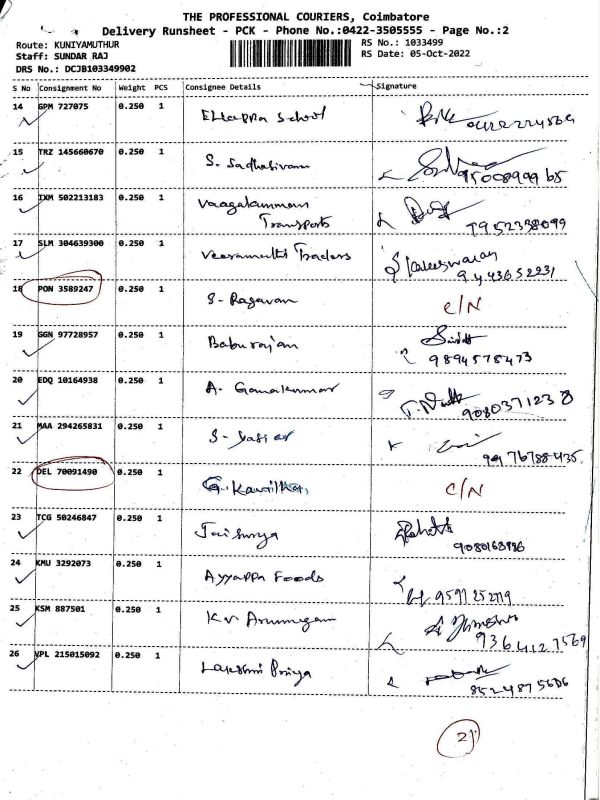 THE PROFESSIONAL COURIERS, Coimbatore
Delivery Runsheet - PCK - Phone No.:0422-3505555 - Page No.:2
Route: KUNIYAMUTHUR
RS No.: 1033499
Staff: SUNDAR RAJ
RS Date: 05-Oct-2022
DRS No.: DCJB103349902
S No Consignment No Weight PCS Consignee Details Signature
14 GPM 727075 0.250 1 Ellappa School
15 TRZ 145660670 0.250 1 S. Sadhasivam 9500899965
16 IXM 502213183 0.250 1 Vaagaikammam
Transports 7952338099
17 SLM 304639300 0.250 1 Veeramuthi Traders
9443652231
18 PON 3589247 0.250 1 S. Ragavan C/N
19 GGN 97728957 0.250 1 Baburajan
9894578473
20 EDQ 10164938 0.250 1 A. Ganakumar
9080371238
21 MAA 294265831 0.250 1
9976788435
22 DEL 70091490 0.250 1 C/N
23 TCG 50246847 0.250 1 Jaisurya
24 KMU 3292073 0.250 1 Ayyappa Foods
25 KSM 887501 0.250 1 K.V Arumugam
9364127569
26 VPL 215015092 0.250 1 Lakshmi Priya